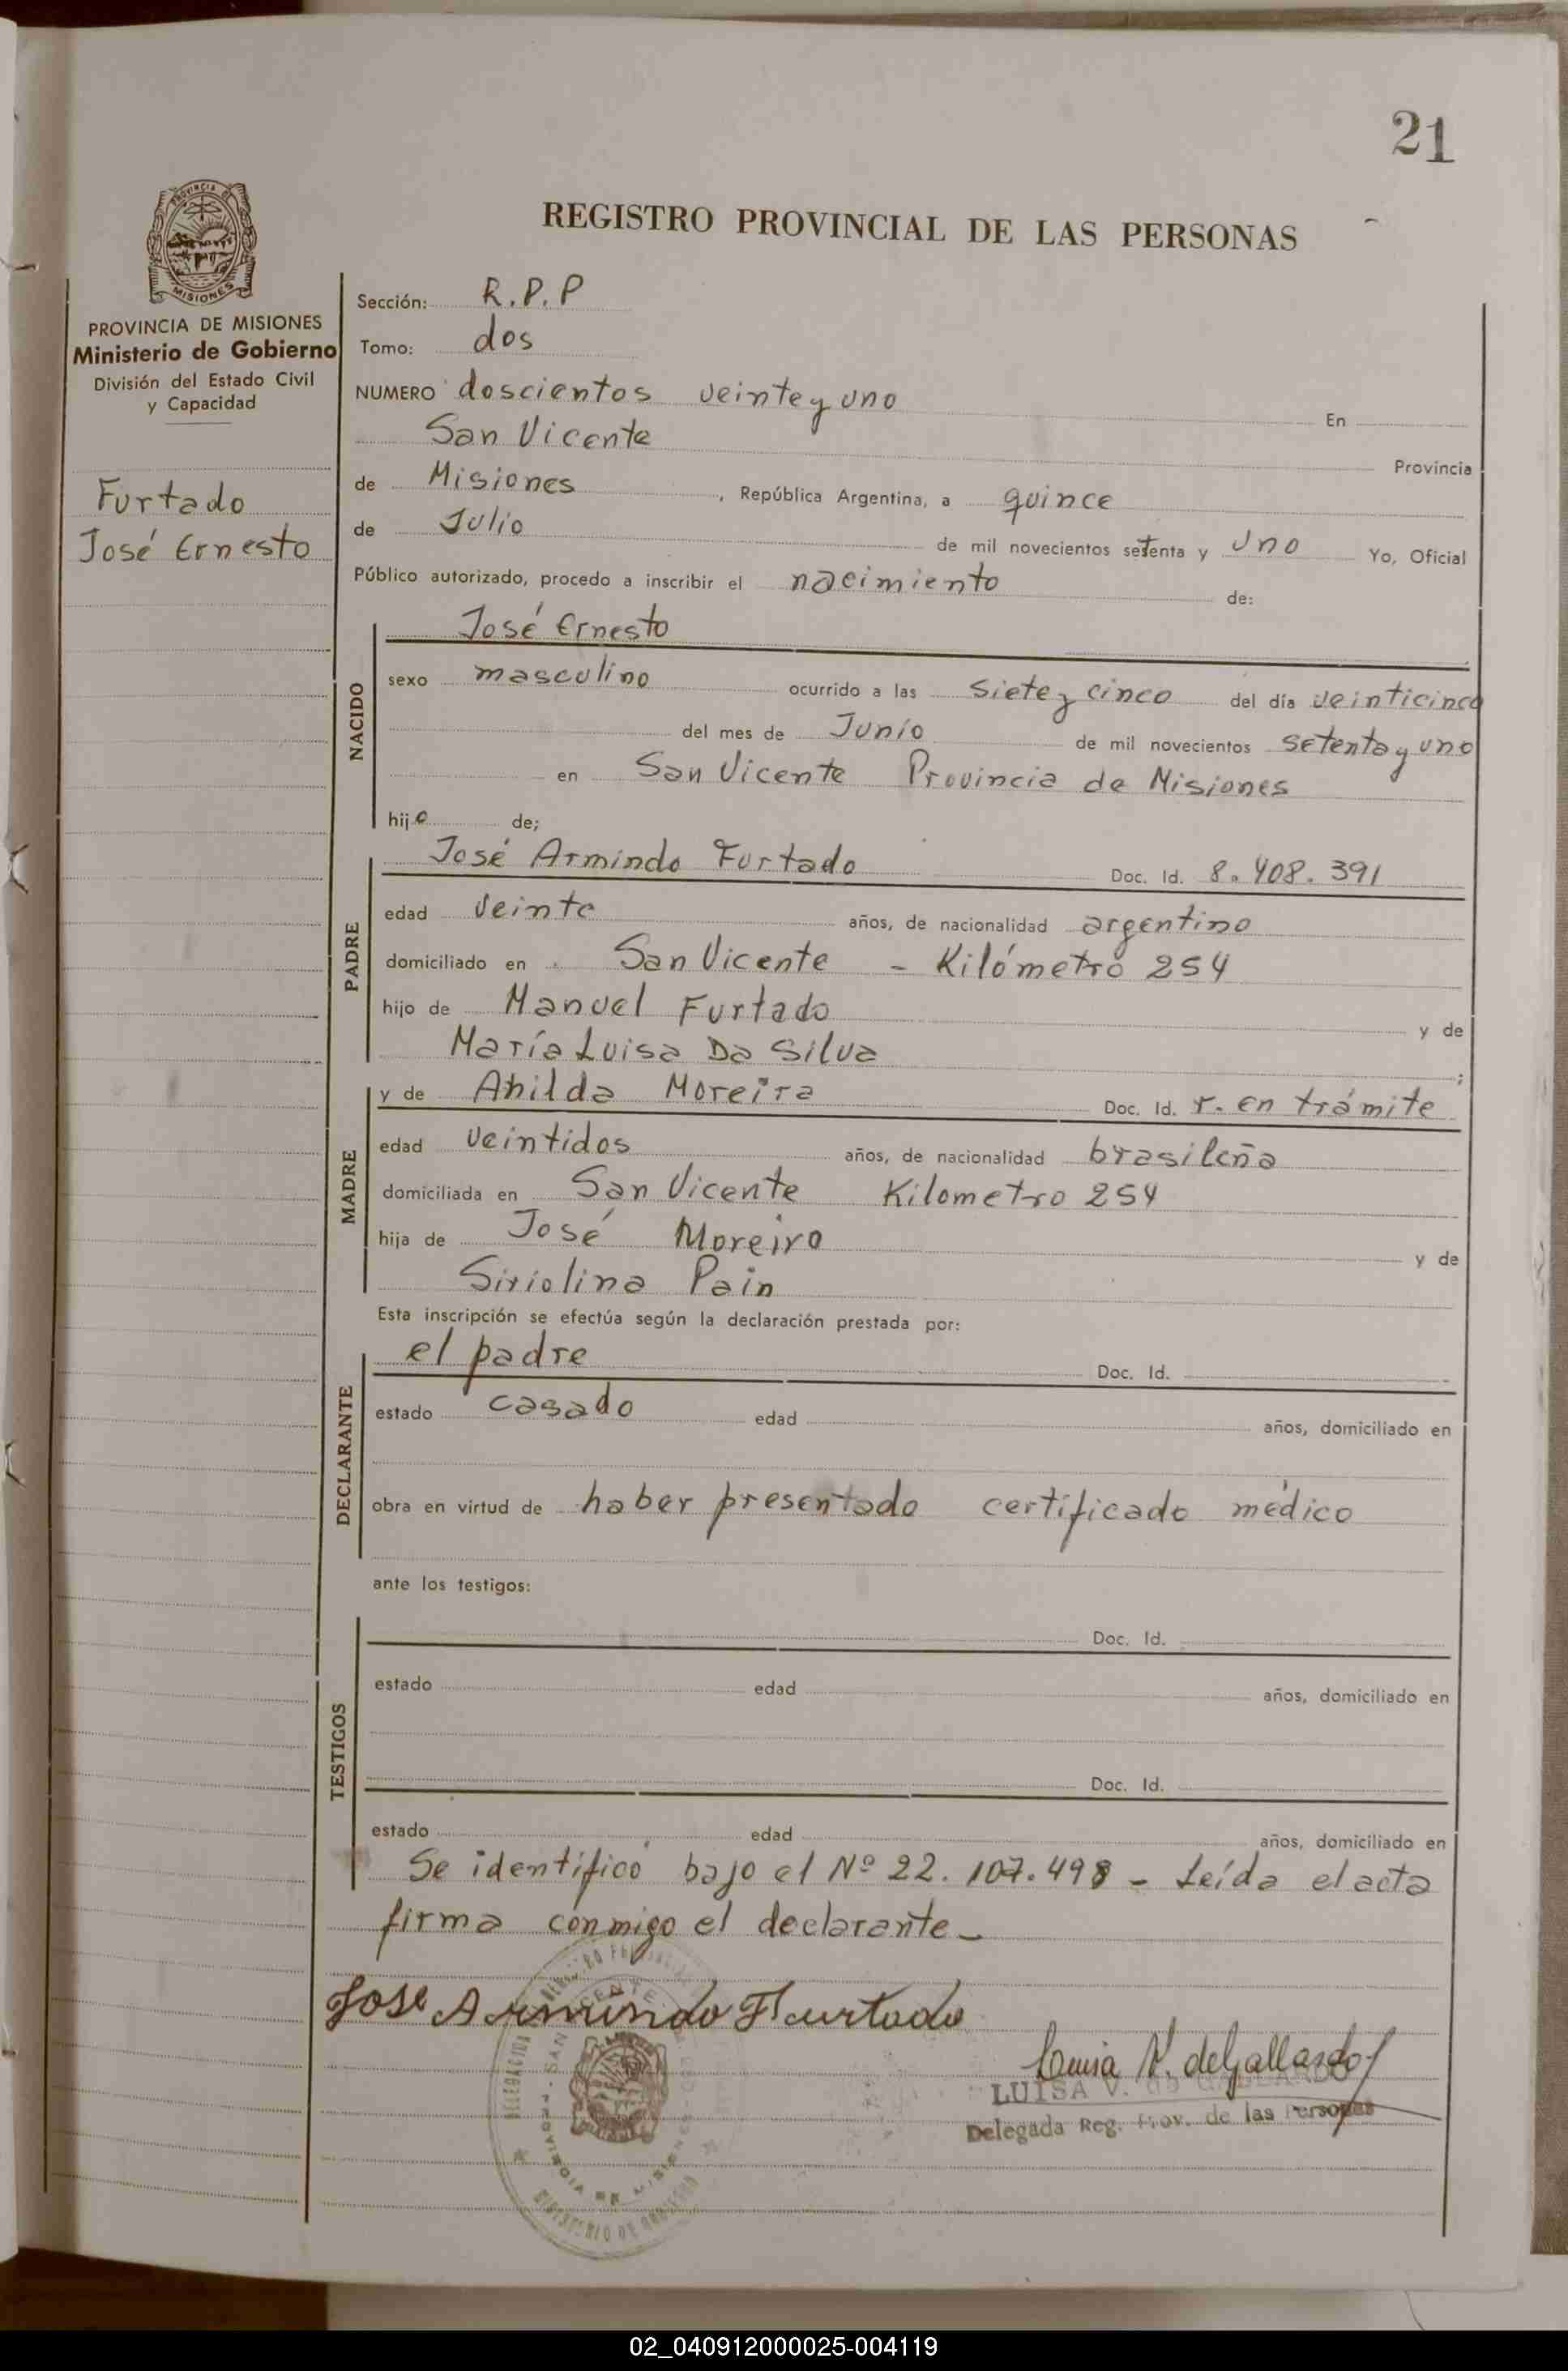 21
REGISTRO PROVINCIAL DE LAS PERSONAS
PROVINCIA DE MISIONES
Ministerio de Gobierno
División del Estado Civil
y Capacidad
Furtado
José Ernesto
Sección: R.P.P
Tomo: dos
NUMERO doscientos veinte y uno En
San Vicente Provincia
de Misiones, República Argentina, a quince
de Julio de mil novecientos setenta y uno Yo, Oficial
Público autorizado, procedo a inscribir el nacimiento de:
NACIDO
José Ernesto
sexo masculino ocurrido a las siete y cinco del día veinticinco
del mes de Junio de mil novecientos setenta y uno
en San Vicente Provincia de Misiones
hijo de;
PADRE
José Armindo Furtado Doc. Id. 8.408.391
edad veinte años, de nacionalidad argentino
domiciliado en San Vicente - Kilómetro 254
hijo de Manuel Furtado y de
María Luisa Da Silva ;
MADRE
y de Ahilda Moreira Doc. Id. r. en trámite
edad veintidos años, de nacionalidad brasileña
domiciliada en San Vicente Kilometro 254
hija de José Moreiro y de
Siriolina Pain
Esta inscripción se efectúa según la declaración prestada por:
DECLARANTE
el padre Doc. Id.
estado casado edad años, domiciliado en
obra en virtud de haber presentado certificado médico
ante los testigos:
TESTIGOS
Doc. Id.
estado edad años, domiciliado en
Doc. Id.
estado edad años, domiciliado en
Se identificó bajo el Nº 22.107.498 - Leída el acta
firma conmigo el declarante -
Jose Armindo Furtado
Luisa V. de Gallardo
LUISA V. de GALLARDO
Delegada Reg. Prov. de las Personas
02_040912000025-004119